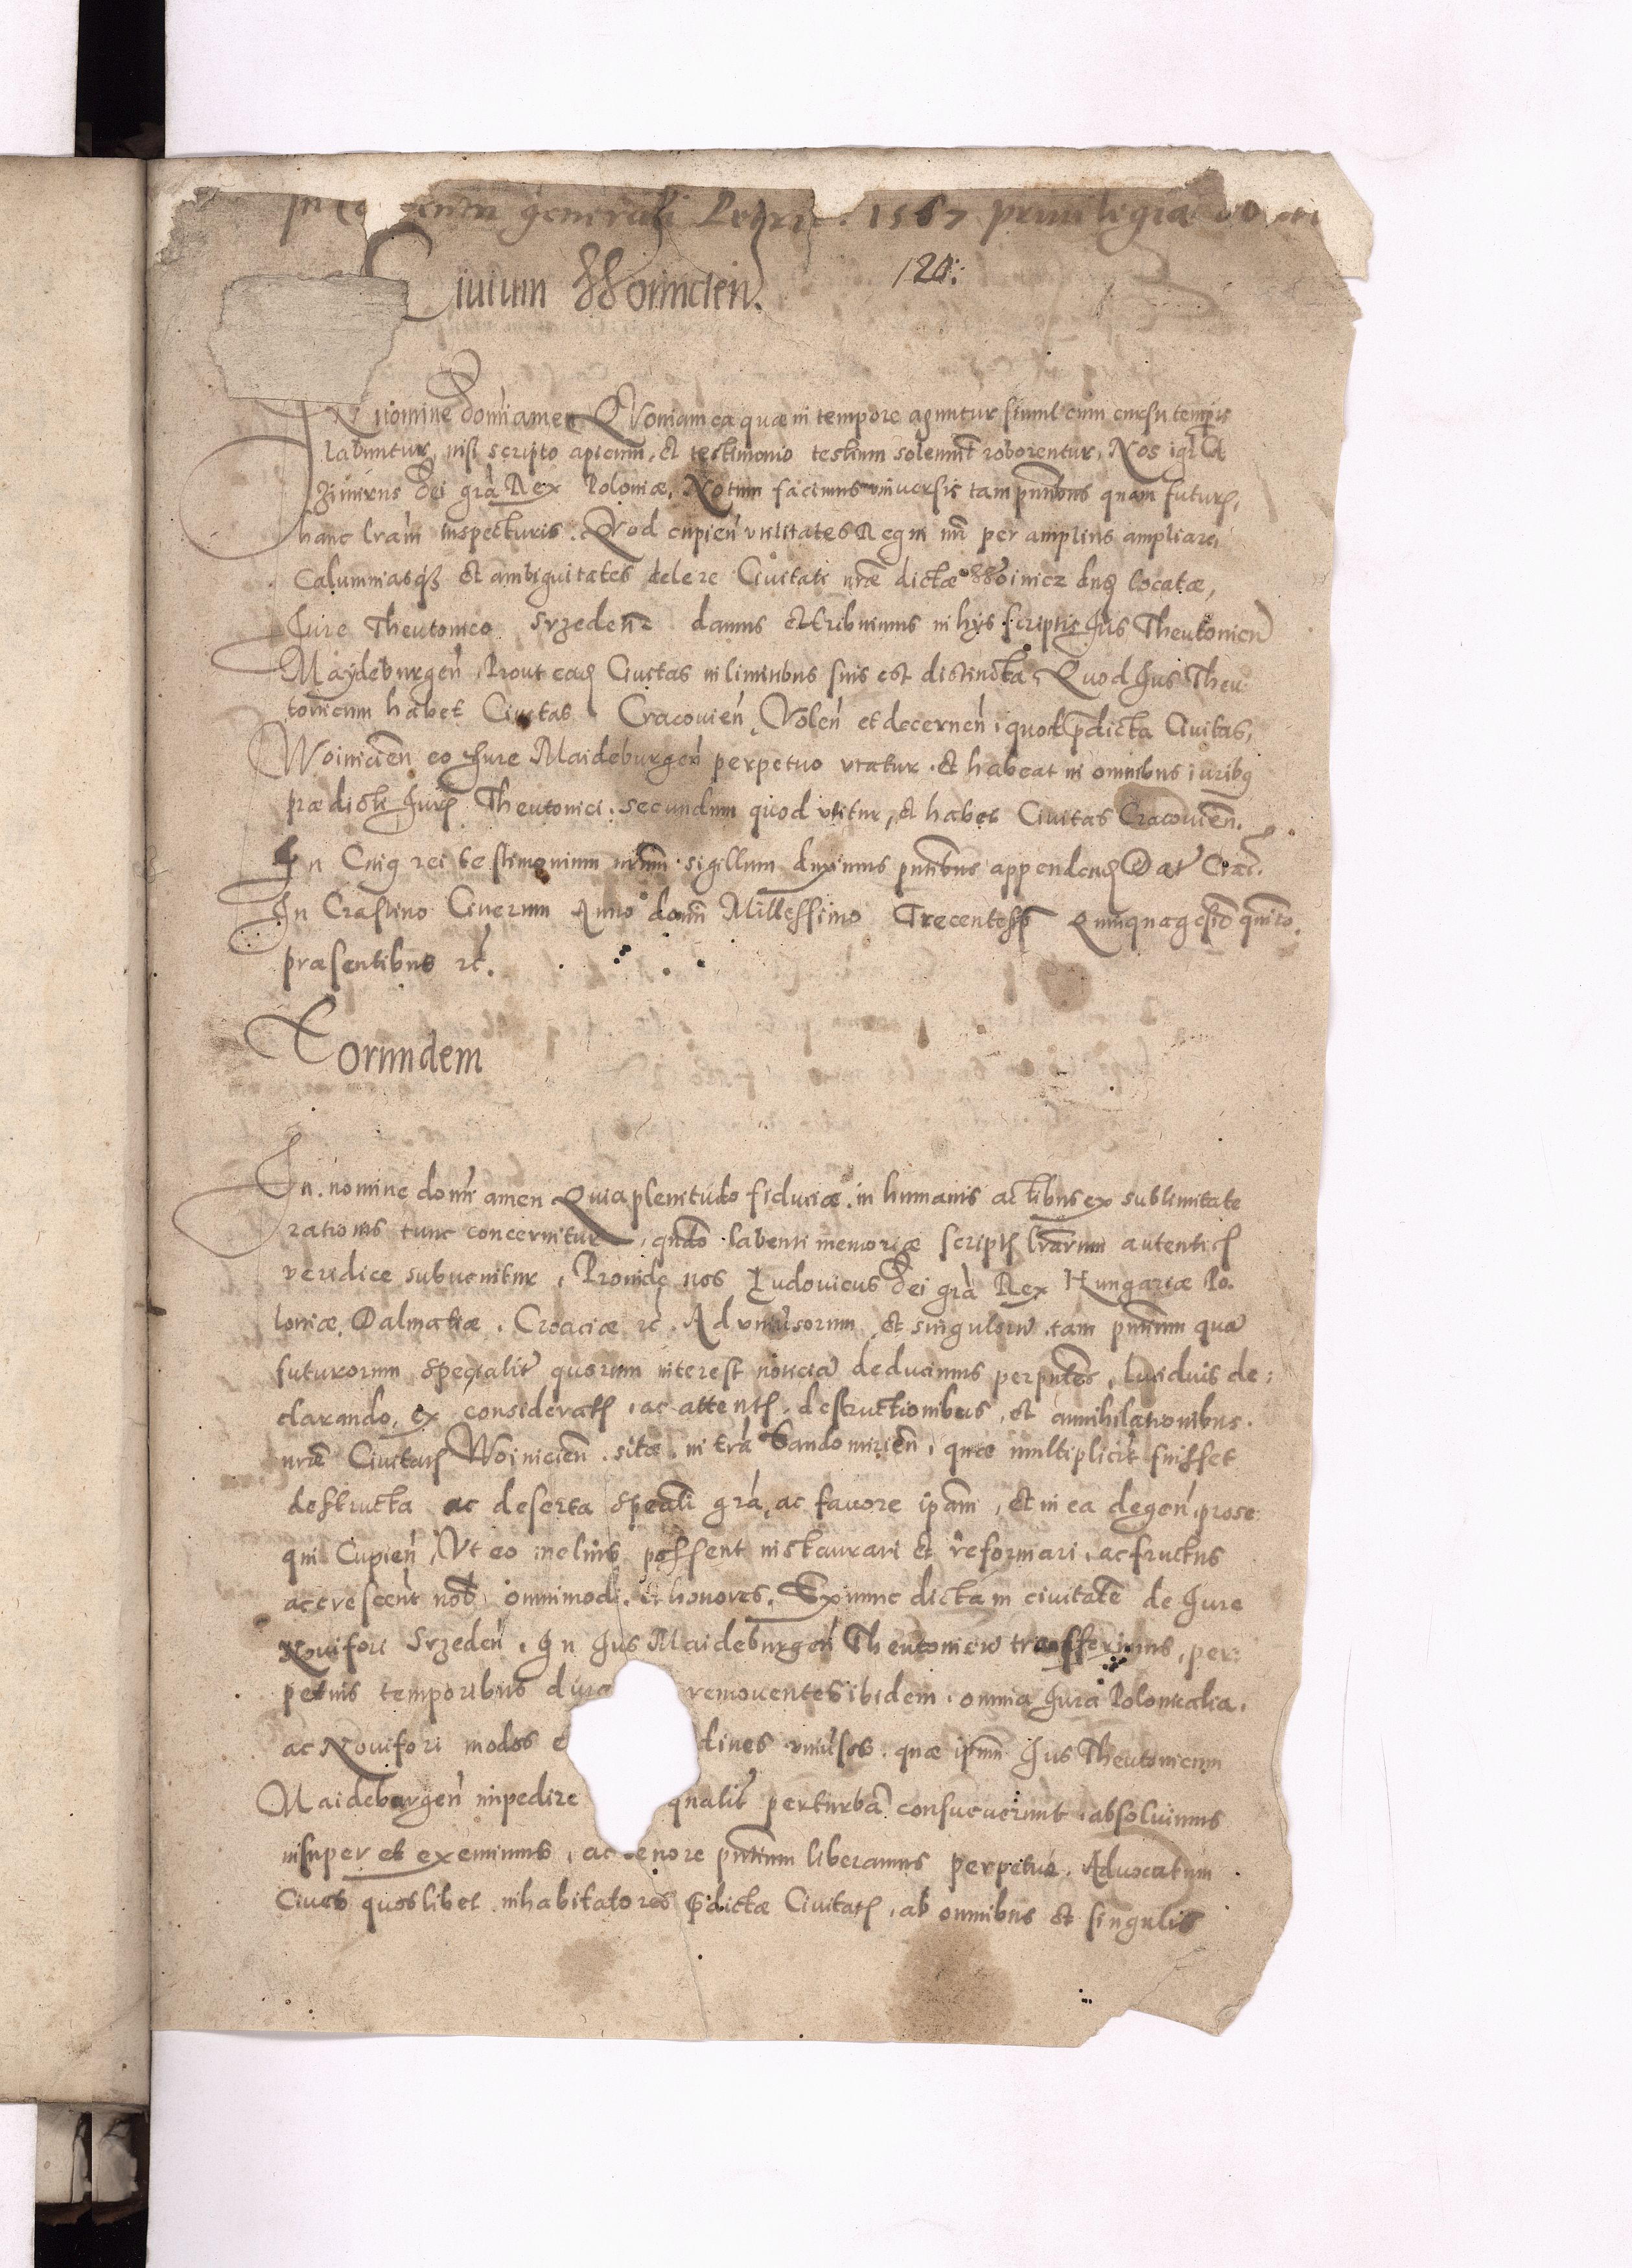 generali Petric. 1567 privilegia
120.
Civium Woinicien.
In nomine domi amen Quoniam ea quae in tempore aguntur simul cum cursu tempris
labuntur, nisi scripto apicum, et testimonio testium solemnt roborentur, Nos igr Ca
zimirus Dei gra Rex Poloniæ, Notum facimus universis tam pntibus quam futur,
hanc lram inspecturis. Quod cupien utilitates Regni nri per amplius ampliare,
Calumniasq et ambiguitates delere Civitati nræ dictæ Woinicz duq locatæ,
Jure Theutonico Srzeden damus et tribuimus in hys scriptis Jus Theutonicu
Maydeburgen, Prout ead Civitas in limitibus suis est distincta, Quod Jus Theu
tonicum habet Civitas Cracovien, Volen et decernen, quod pdicta Civitas,
Woinicien eo Jure Maideburgen perpetuo utatur et habeat in omnibus iuribq
prædicti Jur Theutonici, secundum quod utitur, et habet Civitas Cracovien.
In Cuiq rei testimonium nrum sigillum duximus pntibus appenden Dat Crac.
In Crastino Cinerum Anno domi Millessimo Trecentess Quinquagesio quinto.
præsentibus etc.
Eorundem
In nomine domi amen Quia plenitudo fiduciæ in humanis actibus ex sublimitate
rationis tunc concernitur, qndo labenti memoriæ script lrarum autentic
veridice subvenitur, Proinde nos Ludovicus Dei gra Rex Hungariæ Po-
loniæ, Dalmatiæ, Croaciæ etc. Ad univsorum et singuloru tam pntium qua
futurorum specialit quorum interest noticia deducimus per pntes, lucidius de:
clarando, ex considerat, ac attent, destructionibus, et annihilationibus.
nræ Civitat Woinicien sitæ in tra Sandomirien, quæ multiplicit fuisset
destructa ac deserta speali gra, ac favore ipam, et in ea degen, prose:
qui Cupien, Ut eo melius possent instaurari et reformari, ac fructus
accrescent nob omnimodi et honores, Ex nunc dictam civitate de Jure
Novifori Srzeden, In Jus Maideburgen Theutonicu transferimus, per:
petuis temporibus dura removentes ibidem omnia Jura Polonicalia,
ac Novifori modos e dines univsos, quæ ipsum Jus Theutonicum
Maideburgen impedire qualit perturba consueverunt, absolvimus
insuper et eximimus, ac tenore pntium liberamus perpetuo, Advocatum
Cives quoslibet inhabitatores pdictæ Civitat, ab omnibus et singulis